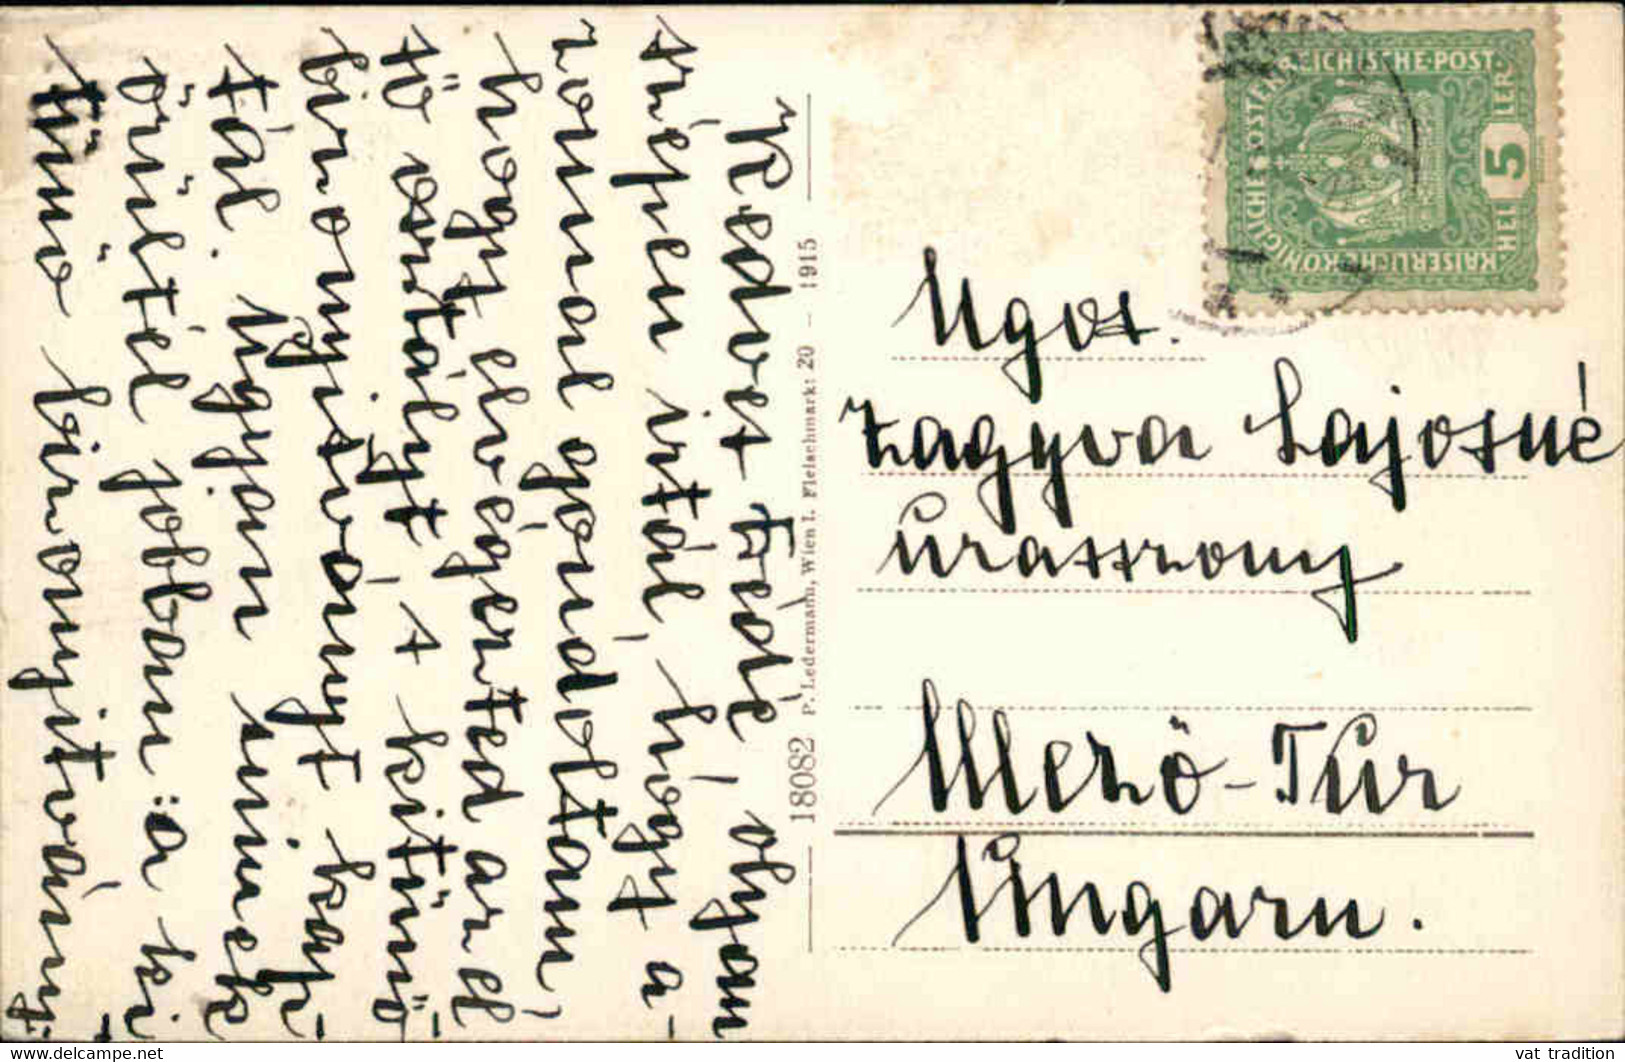 Kedves Fédé, olyan
szépen irtál, hogy a-
zonnal gondoltam,
hogy elvégezted az el-
ső osztályt, s kitünő
bizonyitványt kap-
tál. Ugyan minek
örültél jobban: a ki-
tünő bizonyitvány-
18082 P. Ledermann, Wien I. Fleischmarkt 20 – 1915
KAISERLICHE KÖNIGLICHE ÖSTERREICHISCHE POST
HELLER 5
Ngos.
Zagyva Lajosné
úrasszony
Mező-Túr
Ungarn.
vat tradition